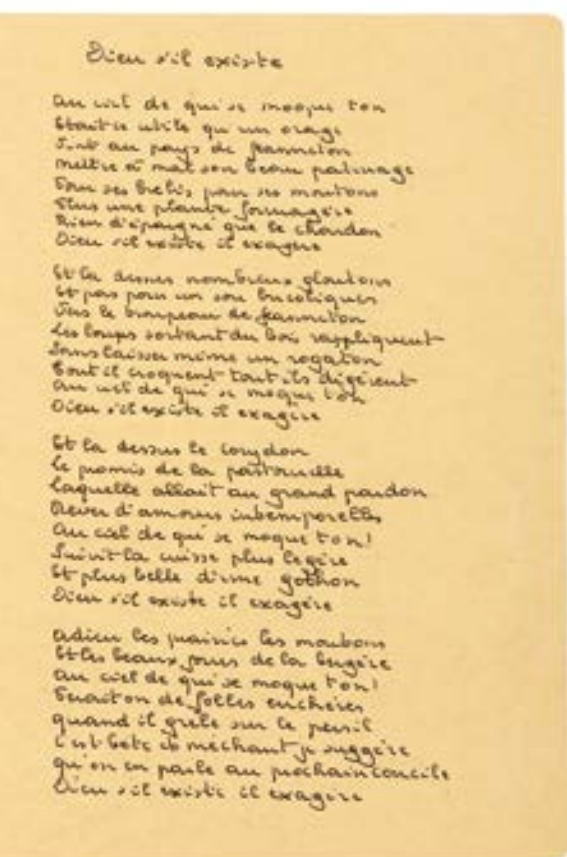 Dieu s'il existe
Au ciel de qui se moque ton
Etait ce utile qu un orage
Vint au pays de Jeanneton
Mettre à mal son beau paturage
Pour ses brebis, pour ses moutons
Plus une plante fourragère
Rien d'épargné que le chardon
Dieu s'il existe il exagère
Et la dessus nombreux gloutons
Et pas pour un sou bucoliques
Vers le troupeau de Jeanneton
Les loups sortant du bois rappliquent
Sans laisser même un rogaton
Tout il croquent tout ils digèrent
Au ciel de qui se moque t on
Dieu s'il existe il exagère
Et la dessus le corydon
Le promis de la pastourelle
Laquelle allait au grand pardon
Rever d'amours intemporelles
Au ciel de qui se moque t on!
Suivit la cuisse plus legère
Et plus belle d'une gothon
Dieu s'il existe il exagère
Adieu les prairies les moutons
Et les beaux jours de la bergère
Au ciel de qui se moque t on!
Ferait on de folles enchères
quand il grele sur le persil
C'est bete et méchant je suggère
qu'on en parle au prochain concile
Dieu s'il existe il exagère